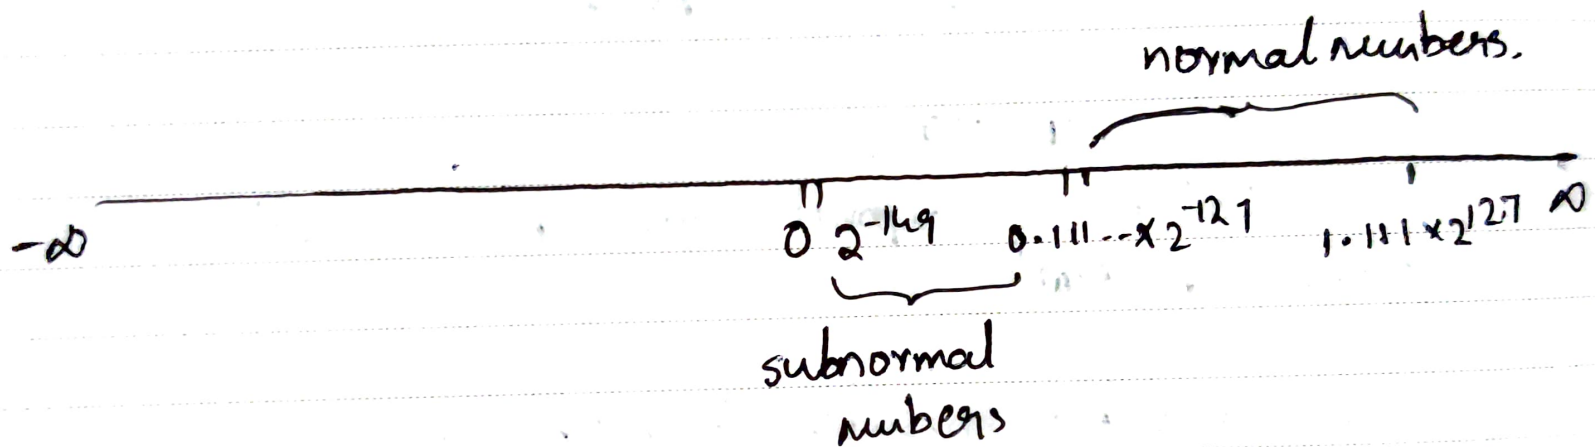 normal numbers.
-∞ 0 2^-149 0.111...x 2^-127 1.111 x 2^127 ∞
subnormal
numbers